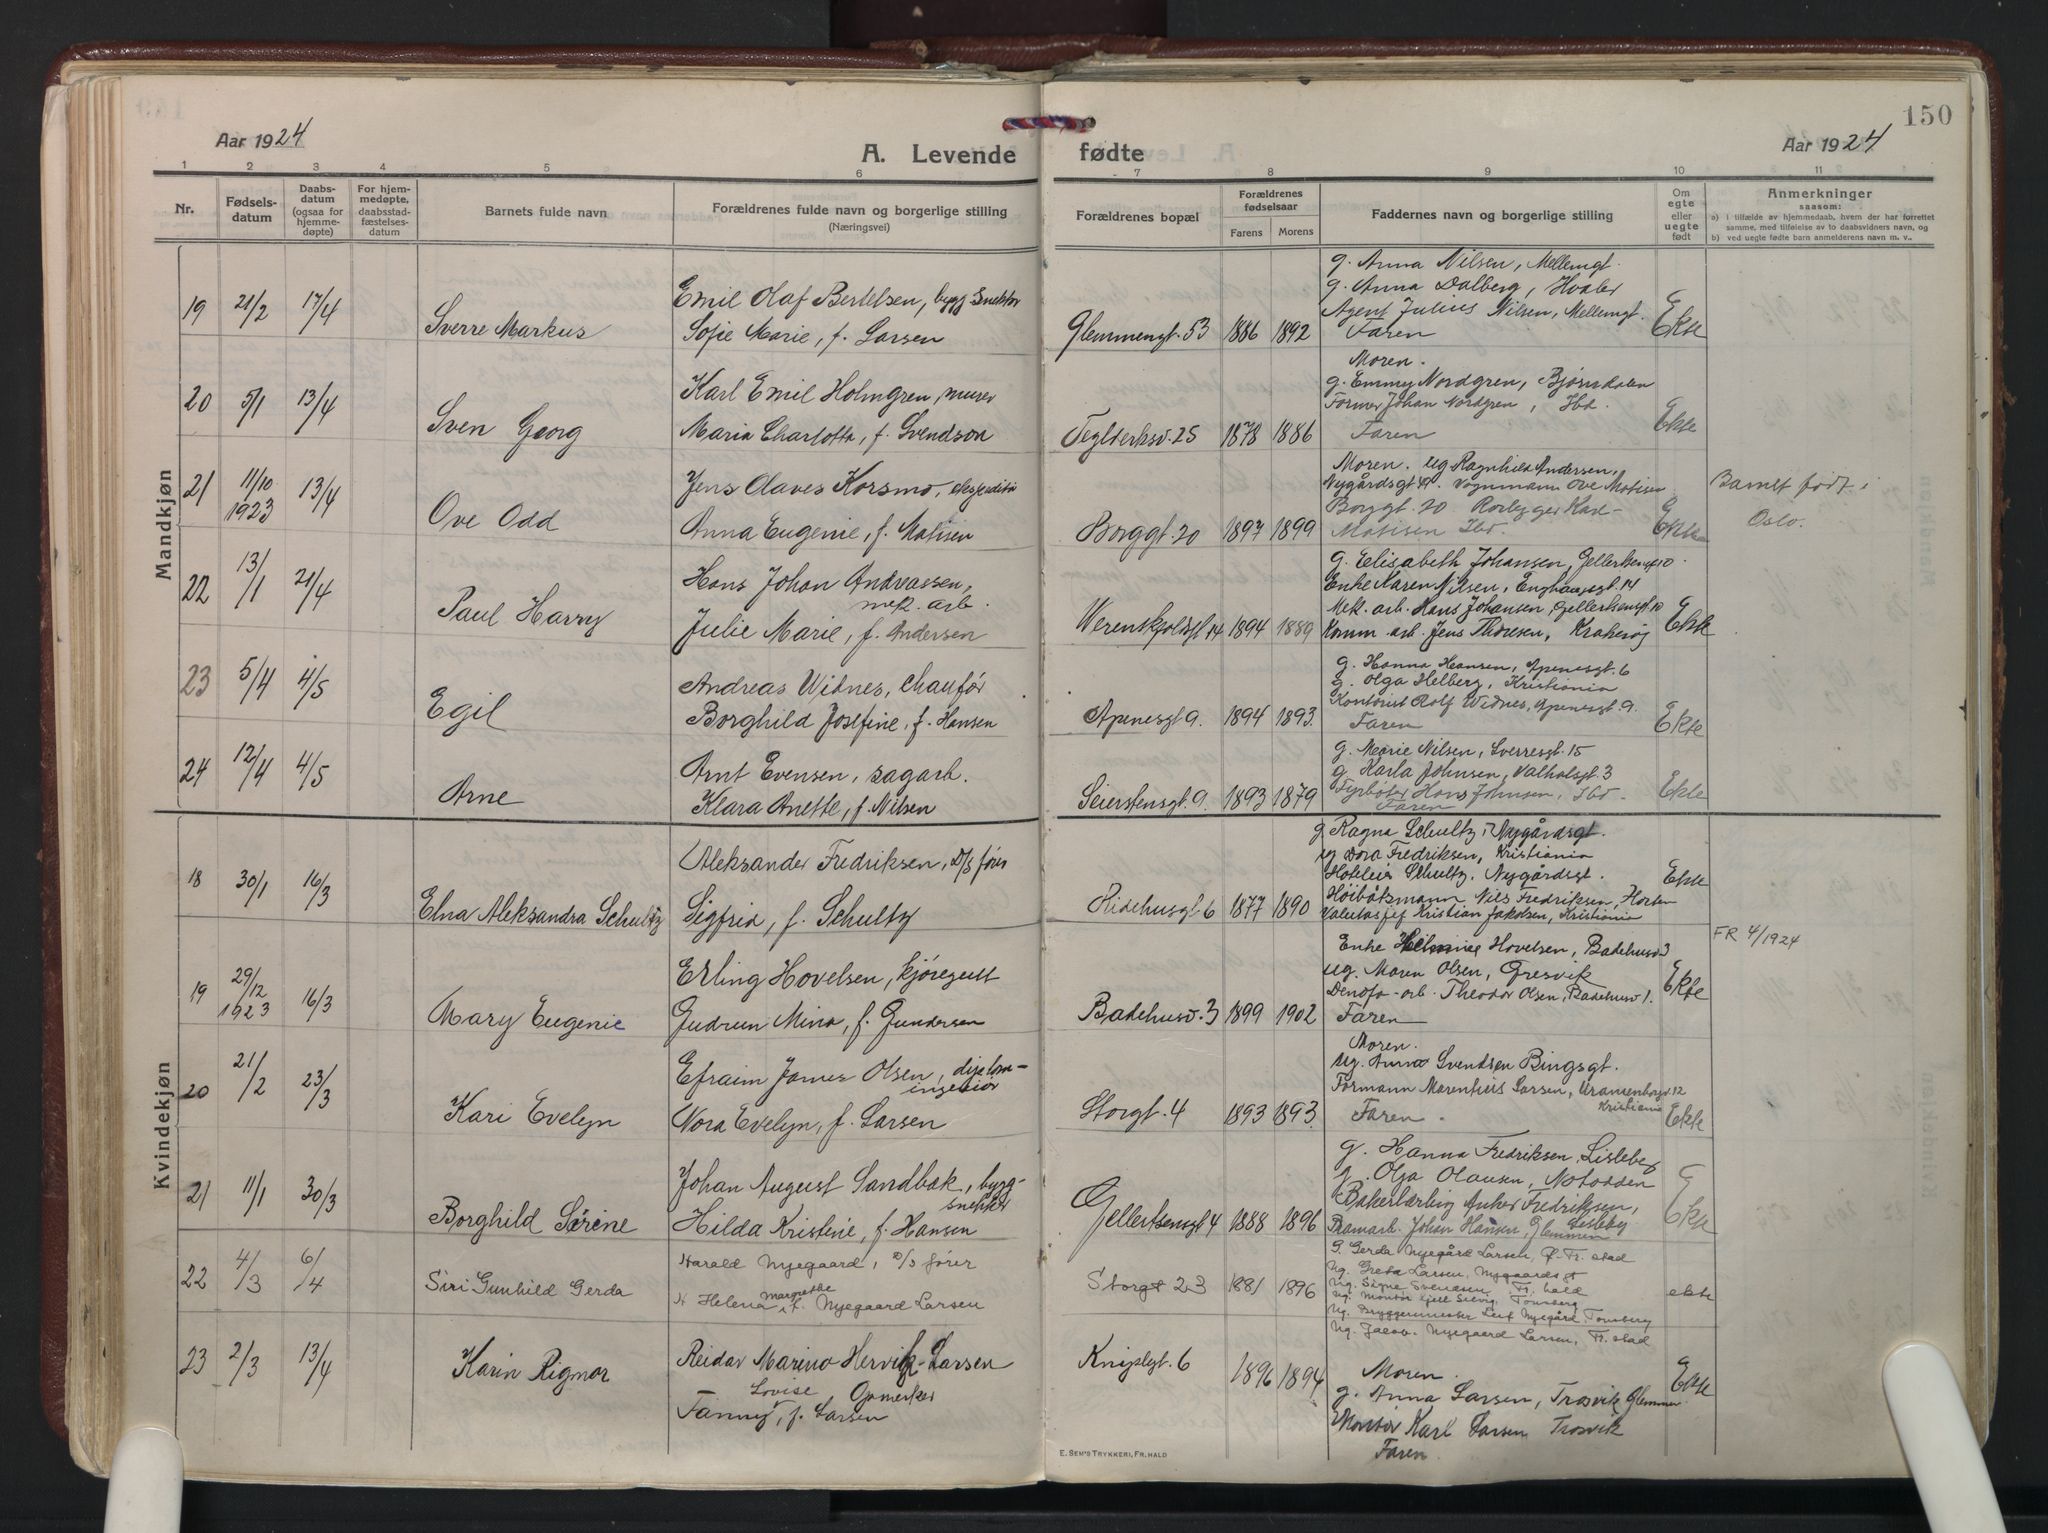 150
Aar 1924
A. Levende
fødte
Aar 1924
1 2 3 4 5 6 7 8 9 10 11
Nr.
Fødsels-
datum
Daabs-
datum
(ogsaa for
hjemme-
døpte)
For hjem-
medøpte,
daabsstad-
fæstelses-
datum
Barnets fulde navn
Forældrenes fulde navn og borgerlige stilling
(Næringsvei)
Forældrenes bopæl
Forældrenes
fødselsaar
Farens Morens
Faddernes navn og borgerlige stilling
Om
egte
eller
uegte
født
Anmerkninger
saasom:
a) i tilfælde av hjemmedaab, hvem der har forrettet
samme, med tilføielse av to daabsvidners navn, og
b) ved uegte fødte barn anmelderens navn m. v..
Mandkjøn
19 21/2 17/4
Sverre Markus
Emil Olaf Bertelsen, bygg.Snekker
Sofie Marie, f. Larsen
Glemmengt. 53 1886 1892
g. Anna Nilsen, Mellemgt.
g. Anna Dalberg, Hvaler
Agent Julius Nilsen, Mellemgt.
Faren
Ekte
20 5/1 13/4
Sven Georg
Karl Emil Holmgren, murer
Maria Charlotta, f. Svendson
Teglverksv. 25 1878 1886
Moren.
g. Emmy Nordgren, Bjørndalen
Former Johan Nordgren, Ibd.
Faren
Ekte
21 11/10 1923 13/4
Ove Odd
Jens Olaves Korsmo, ekspeditør
Anna Eugenie, f. Matisen
Borggt. 20 1897 1899
Moren. ug Ragnhild Andersen,
Nygårdsgt. Vognmann Ove Matisen
Borggt. 20 Rørlegger Karl
Matisen Ibd.
Ekte
Barnet født i
Oslo.
22 13/1 21/4
Paul Harry
Hans Johan Andreassen,
mek. arb.
Julie Marie, f. Andersen
Werenskjoldsgt 14 1894 1889
g. Elisabeth Johansen, Gellertsensgt 10.
Enke Karen Nilsen, Enghaugsgt. 14
Mek. arb. Hans Johansen, Gellertsensgt 10
Komm. arb. Jens Thoresen, Krakerøy
Ekte
23 5/4 4/5
Egil
Andreas Widnes, Chauffør
Borghild Josefine, f. Hansen
Apenesgt 9. 1894 1893.
g. Hanna Hansen, Apenesgt. 6
g. Olga Helberg, Kristiania
Kontorist Rolf Widnes, Apenesgt. 9.
Faren
Ekte
24 12/4 4/5
Arne
Arnt Evensen, sagarb.
Klara Anette, f. Nilsen
Seierstensgt. 9. 1893 1879
g. Marie Nilsen, Sverresgt. 15
g. Karla Johnsen, Valhalsgt. 3
Fyrbøter Hans Johnsen, Ibd.
Faren
Ekte
Kvindekjøn
18 30/1 16/3
Elna Aleksandra Schultz
Aleksander Fredriksen, D/s fører
Sigfrid, f. Schultz
Ridehusgt. 6 1877 1890
g Ragna Schultz, Nygårdsgt.
ug Dora Fredriksen, Kristiania
Hoteleier Schultz. Nygårdsgt.
Høibåtsmann Nils Fredriksen, Horten
Valutasjef Kristian Jakobsen, Kristiania
Ekte
FR 4/1924
19 29/12 1923 16/3
Mary Eugenie
Erling Hovelsen, kjøregutt
Gudrun Mina, f. Gundersen
Badehusv. 3 1899 1902
Enke Helmine Hovelsen, Badehusv 3
ug. Maren Olsen, Gresvik
Denofa-arb. Theodor Olsen, Badehusv 1.
Faren
Ekte
20 21/2 23/3
Kari Evelyn
Efraim James Olsen, diplom-
ingeniør
Nora Evelyn, f. Larsen
Storgt. 4 1893 1893.
Moren.
ug. Anna Svendsen Bingsgt.
Formann Marentius Larsen, Uranienborgv. 12
Kristiania
Faren.
Ekte
21 11/1 30/3
Borghild Sørine
Johan August Sandbak, bygg-
snekker
Hilda Kristine, f. Hansen
Gellertsensgt 4 1888 1896
g. Hanna Fredriksen, Lisleby
g. Olga Olausen, Notodden
Bakerlærling Anker Fredriksen,
Lisleby
Bramarb. Johan Hansen, Glemmen
Ekte
22 4/3 6/4
Siri Gunhild Gerda
Harald Nyegaard, D/s fører
Helena Margrethe f. Nyegaard Larsen
Storgt 23 1881 1896
G. Gerda Nyegård Larsen, Ø. Fr.stad
Ug. Greta Larsen, Nygaardsgt
Ug. Signe Svendsen, Fr. hald
Ug. Montør Kjell Selvig, Tønsberg
Ug. Bryggermester Leif Nyegård, Tønsberg
Ug. Jacob Nyegaard Larsen, Fr. stad
ekte
23 2/3 13/4
Karin Rigmor
Reidar Marino Hervik-Larsen
Opmerker
Fanny Lovise, f. Larsen
Kniplgt. 6 1896 1894
Moren.
g. Anna Larsen, Trosvik, Glemmen
Montør Karl Larsen Trosvik
Faren.
Ekte
E. SEM'S TRYKKERI, FR.HALD